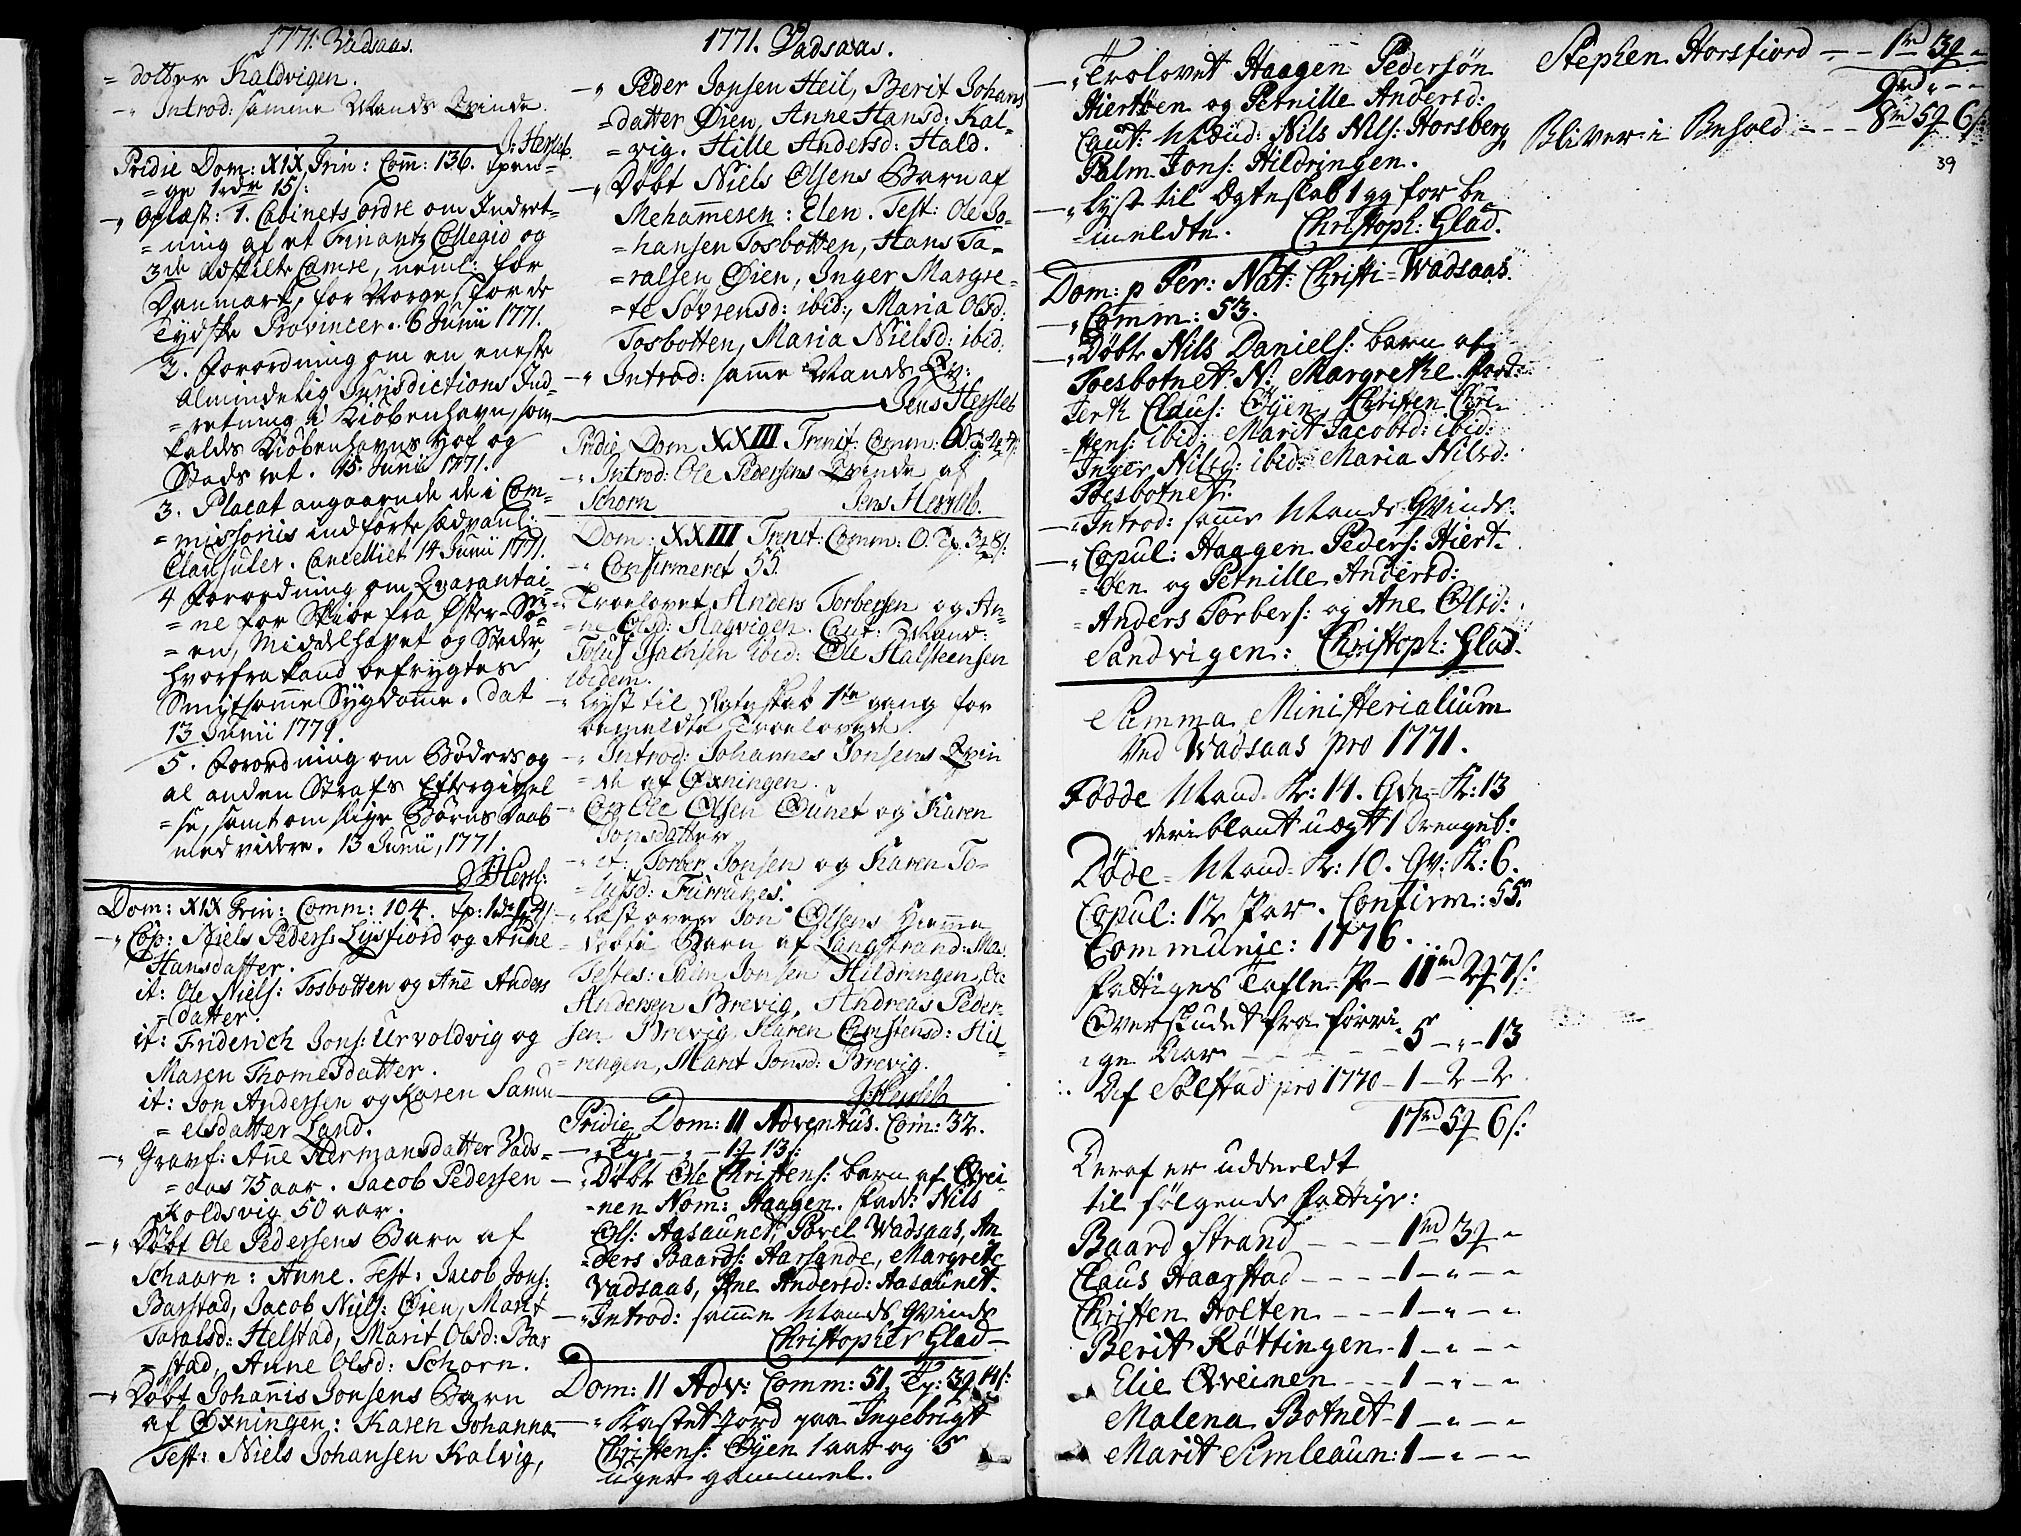 1771. Vadsaas.
= dotter Kaldvigen.
-" Introd: samme Mands Qvinde.
J: Hersleb.
Pridie Dom: XIX Trin: Comm: 136. Tpen=
= ge 1 rdr 15 s:
-" Oplæst: 1. Cabinets ordre om Indret=
= ning af et Finantz Collegio og
3de adskilte Camre, neml: for
Danmark, for Norge, for de
Tydske Provincer. 6 Junii 1771.
2. Forordning om en eneste
almindelig Jurisdictions Ind=
= retning i Kiøbenhavn, som
kaldes Kiøbenhavns Hof og
Stads ret. 15 Junii 1771.
3. Placat angaaende de i Com=
= missoriis indførte sædvanl:
Clausuler. Cancelliet 14 Junii 1771.
4 Forordning om Qvarantai=
= ne for Skibe fra Øster-Sø=
= en, Middelhavet og Steder,
hvorfra Land befrygtes
Smitsomme Sygdomme. Dat
13 Junii 1771.
5. Forordning om Bøders og
al anden Strafs Eftergivel
= se, samt om slige Børns Daab
med videre. 13 Junii, 1771.
J: Hersl:
Dom: XIX Trin: Comm: 104. Tp: 1 dr
-" Cop: Niels Peders: Lysfiord og Anne
Hansdatter.
it: Ole Niels: Tosbotten og Ane Anders
= datter.
it: Friderich Jons: Urvoldvig og
Maren Thomesdatter.
it: Jon Andersen og Karen Samu
= elsdatter Land.
-" Gravf: Ane Hermansdatter Vads=
= aas 75 aar. Jacob Pedersen
Koldsvig 50 aar.
-" Døbt Ole Pedersens Barn af
Schaarn: Anne. Test: Jacob Jons:
Barstad, Jacob Niels: Øien, Marit
Taralsd: Helstad, Marit Olsd: Bar
= stad, Anne Olsd: Schorn.
-" Døbt Johannis Jonsens Barn
af Øxningen: Karen Johanna
Test: Niels Johansen Kalvig,
1771. Vadsaas.
-" Peder Jonsen Heil, Berit Johans
= datter Øien, Anne Hansd: Kal=
= vig. Hille Andersd: Hald.
-" Døbt Niels Olsens Barn af
Mehammesen: Elen. Test: Ole Jo=
= hansen Tosbotten, Hans Ta=
= ralsen Øien, Inger Margre=
= te Søvrensd: ibid:, Maria Olsd:
Tosbotten, Maria Nielsd: ibid:
-" Introd: samme Mands Qv:
Jens Hersleb
Pridie Dom XXIII Trinit: Comm: 60
-" Introd: Ole Pedersens Qvinde af
Schorn Jens Hersleb.
Dom: XXIII Trinit: Comm: 0. Tp. 3 8 s:
-" Confirmeret 55.
-" Troelovet Anders Torbersen og An=
= ne Olsd: Sagvigen. Caut: Mænd:
Josuf Isachsen ibid: Ole Halsteensen
ibidem.
-" Lyst til Ægteskab 1ste gang for
bemeldte Troelovede.
-" Introd: Johannes Jonsens Qvin
= de af Øxningen.
-" Cop Ole Olsen Ounet og Karen
Jonsdatter
-" et: Torber Jonsen og Karen To=
= Furrunes:
-" Læst over Jon Olsens hiemme
= døbte Barn af Langstrand: Mar:
Testes: Palm Jonsen Hildringen, Ole
Andersen Brevig, Andreas Peder=
sen Brevig, Karen Christensd: Hil=
= rengen, Marit Jonsd: Brevig.
J: Hersleb
Pridie Dom: 11 Adventus. Com: 32.
-" Tp. - " - 1 13 s:
-" Døbt Ole Christens: barn af Qvei=
= nen Nom: Haagen. Fadd: Nils
Ols: Aasaunet, Povel Wadsaas, An
= ders Baards: Aarsande, Margrete
Vadsaas, Ane Andersd: Aasaunet.
-" Introd: samme Mands Qvinde
Christopher Glad
Dom: 11 Adv: Comm: 51. Tp: 3 14 s:
-" Kastet Jord paa Ingebrigt
Christens: Øyen 1 aar og 5
uger gammel.
-" Trolovet Haagen Pedersøn
Hiertøen og Pernille Andersd:
Caut: Mænd: Nils Nils: Horsberg,
Palm Jons: Hildringen.
-" Lyst til Ægteskab 1 gg for be
= meldte. Christoph: Glad.
Dom: p Fer: Nat: Christi = Wadsaas.
-" Comm: 53.
-" Døbt Nils Daniels: barn af
Toesbotnet N: Margrethe. Fad:
Jerik Claus: Øyen, Christen Chri=
stens: ibid: Marit Jacobsd: ibid:
Inger Nilsd: ibid: Maria Nilsd:
Toesbotnet.
-" Introd: samme Mands Qvinde.
-" Copul: Haagen Peders: Hiert=
= øen og Pernille Andersd:
= Anders Torbers: og Ane Olsd:
Sandvigen: Christoph: Glad.
Summa Ministerialium
Ved Wadsaas pro 1771.
Fødde Mand-Kr: 14. Qvn-K: 13
deriblant uægt 1 Drengeb:
Døde - Mand-Kr: 10. Qv: K: 6.
Copul: 12 Par. Confirm: 55.
Communic: 1776.
Fattiges Tafle-P - 11 rd 2 7 s:
Overskudet fra forri
= ge Aar - - - - - 5 - " - 13
Af Sølstad pro 1770 - 1 - 2 - 2
17 rd 5 6 s:
Deraf er uddeeldt
til følgende Fattige:
Baard Strand - - - 1 rd 3 "
Claus Haarstad - - - - 1 - " - "
Christen Holten - - - 1 - " - "
Berit Røttingen - 1 - " - "
Elie Qveinen - - - 1 - " - "
Malena Botnet - 1 - " - "
Marit Simleaun: 1 - " - "
Stephen Horsfiord - - 1 rd 3 "
9 rd " - "
Bliver i Behold - - - 8 rd 5 6 s:
39